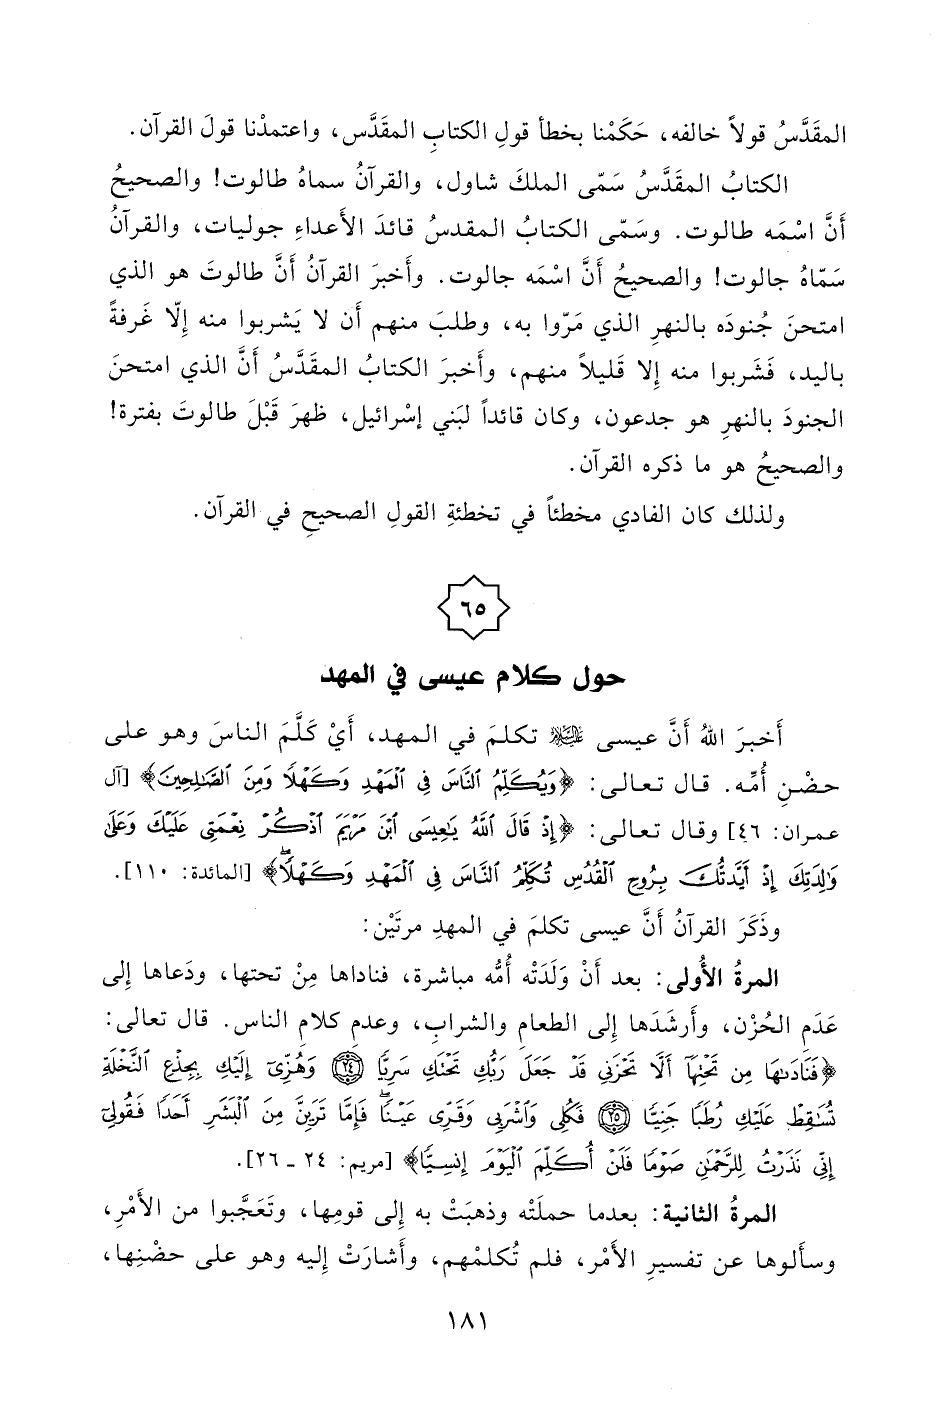 المقَدَّسُ قولاً خالفه، حَكَمْنا بخطأ قولِ الكتابِ المقَدَّس، واعتمدْنا قولَ القرآن.
الكتابُ المقَدَّسُ سَمّى الملكَ شاول، والقرآنُ سماهُ طالوت! والصحيحُ
أَنَّ اسْمَه طالوت. وسَمّى الكتابُ المقدسُ قائدَ الأَعداءِ جوليات، والقرآنُ
سَمّاهُ جالوت! والصحيحُ أَنَّ اسْمَه جالوت. وأَخبرَ القرآنُ أَنَّ طالوتَ هو الذي
امتحنَ جُنودَه بالنهرِ الذي مَرّوا به، وطلبَ منهم أَن لا يَشربوا منه إِلّا غَرفةً
باليد، فَشَربوا منه إِلا قَليلاً منهم، وأَخبرَ الكتابُ المقَدَّسُ أَنَّ الذي امتحنَ
الجنودَ بالنهرِ هو جدعون، وكان قائداً لبَني إِسْرائيل، ظهرَ قَبْلَ طالوتَ بفترة!
والصحيحُ هو ما ذكره القرآن.
ولذلك كان الفادي مخطئاً في تخطئةِ القولِ الصحيحِ في القرآن.
٦٥
حول كلام عيسى في المهد
أَخبرَ اللهُ أَنَّ عيسى عليه السلام تكلمَ في المهد، أَيْ كَلَّمَ الناسَ وهو على
حضْنِ أُمِّه. قال تعالى: ﴿وَيُكَلِّمُ ٱلنَّاسَ فِي ٱلْمَهْدِ وَكَهْلًا وَمِنَ ٱلصَّٰلِحِينَ﴾ [آل
عمران: ٤٦] وقال تعالى: ﴿إِذْ قَالَ ٱللَّهُ يَٰعِيسَى ٱبْنَ مَرْيَمَ ٱذْكُرْ نِعْمَتِي عَلَيْكَ وَعَلَىٰ
وَٰلِدَتِكَ إِذْ أَيَّدتُّكَ بِرُوحِ ٱلْقُدُسِ تُكَلِّمُ ٱلنَّاسَ فِي ٱلْمَهْدِ وَكَهْلًاۖ﴾ [المائدة: ١١٠].
وذَكَرَ القرآنُ أَنَّ عيسى تكلمَ في المهدِ مرتَيْن:
المرةُ الأُولى: بعد أَنْ وَلَدَتْه أُمُّه مباشرة، فناداها مِنْ تحتها، ودَعاها إِلى
عَدَمِ الحُزْن، وأَرشَدَها إِلى الطعامِ والشراب، وعدمِ كلامِ الناس. قال تعالى:
﴿فَنَادَىٰهَا مِن تَحْتِهَآ أَلَّا تَحْزَنِي قَدْ جَعَلَ رَبُّكِ تَحْتَكِ سَرِيًّا ٢٤ وَهُزِّيٓ إِلَيْكِ بِجِذْعِ ٱلنَّخْلَةِ
تُسَٰقِطْ عَلَيْكِ رُطَبًا جَنِيًّا ٢٥ فَكُلِي وَٱشْرَبِي وَقَرِّي عَيْنًاۖ فَإِمَّا تَرَيِنَّ مِنَ ٱلْبَشَرِ أَحَدًا فَقُولِيٓ
إِنِّي نَذَرْتُ لِلرَّحْمَٰنِ صَوْمًا فَلَنْ أُكَلِّمَ ٱلْيَوْمَ إِنسِيًّا﴾ [مريم: ٢٤ ـ ٢٦].
المرةُ الثانية: بعدما حملَتْه وذهبَتْ به إِلى قومِها، وتَعَجَّبوا من الأَمْر،
وسأَلوها عن تفسيرِ الأَمْر، فلم تُكلمْهم، وأَشارَتْ إِليه وهو على حضْنِها،
١٨١